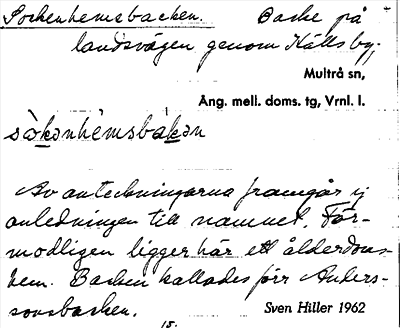 Sockenhemsbacken. Backe på
landsvägen genom Källs by.
Multrå sn,
Ång. mell. doms. tg, Vrnl. l.
sòkənhèmsbakən
Av anteckningarna framgår ej
anledningen till namnet. För-
modligen ligger här ett ålderdoms-
hem. Backen kallades förr Anders-
sonsbacken.
Sven Hiller 1962
15.